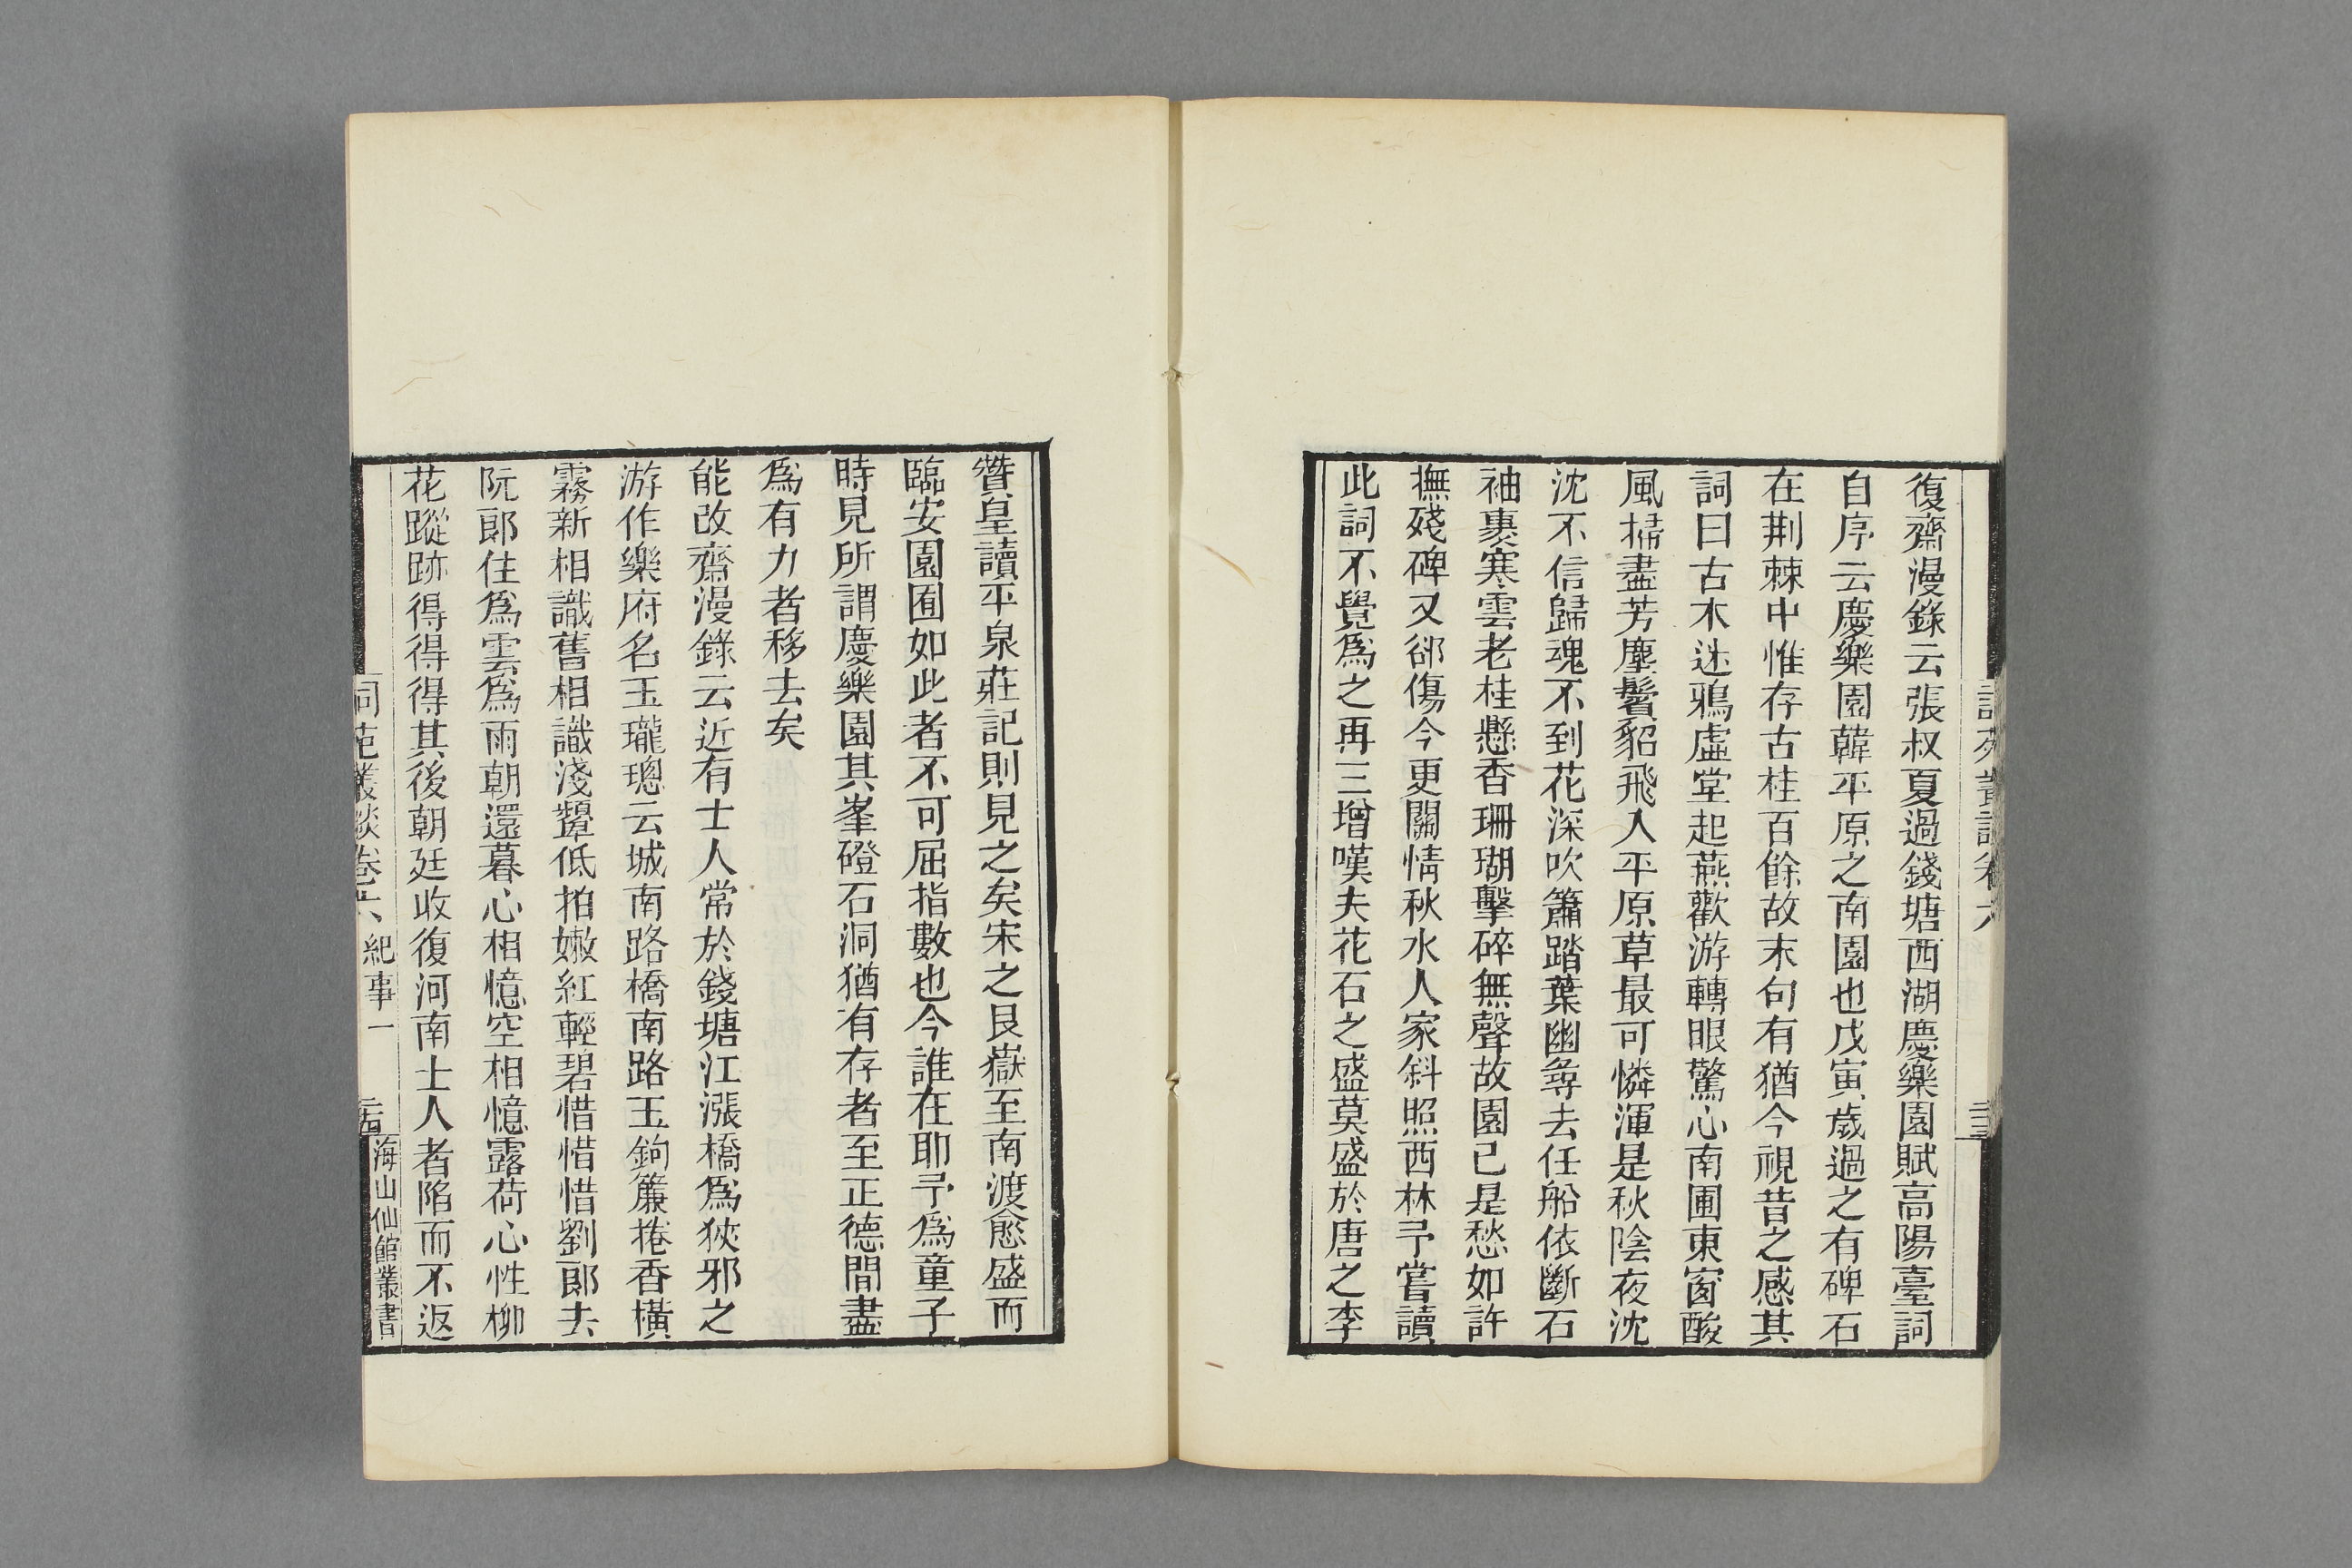 復齋漫錄云張叔夏過錢塘西湖慶樂園賦高陽臺詞
自序云慶樂園韓平原之南園也戊寅歲過之有碑石
在荆棘中惟存古桂百餘故末句有猶今視昔之感其
詞曰古木迷鴉虛堂起燕歡游轉眼驚心南圃東窗酸
風掃盡芳塵鬢貂飛入平原草最可憐渾是秋陰夜沈
沈不信歸魂不到花深吹簫踏葉幽尋去任船依斷石
袖裹寒雲老桂懸香珊瑚擊碎無聲故園已是愁如許
撫殘碑又卻傷今更關情秋水人家斜照西林予嘗讀
此詞不覺爲之再三增嘆夫花石之盛莫盛於唐之李
贊皇讀平泉莊記則見之矣宋之艮嶽至南渡愈盛而
臨安園囿如此者不可屈指數也今誰在耶予爲童子
時見所謂慶樂園其峯磴石洞猶有存者至正德間盡
爲有力者移去矣
能改齋漫錄云近有士人常於錢塘江漲橋爲狹邪之
游作樂府名玉瓏璁云城南路橋南路玉鉤簾捲香橫
霧新相識舊相識淺顰低拍嫩紅輕碧惜惜惜劉郞去
阮郞住爲雲爲雨朝還暮心相憶空相憶露荷心性柳
花蹤跡得得得其後朝廷收復河南士人者陷而不返
詞苑叢談卷六 紀事一
海山仙館叢書